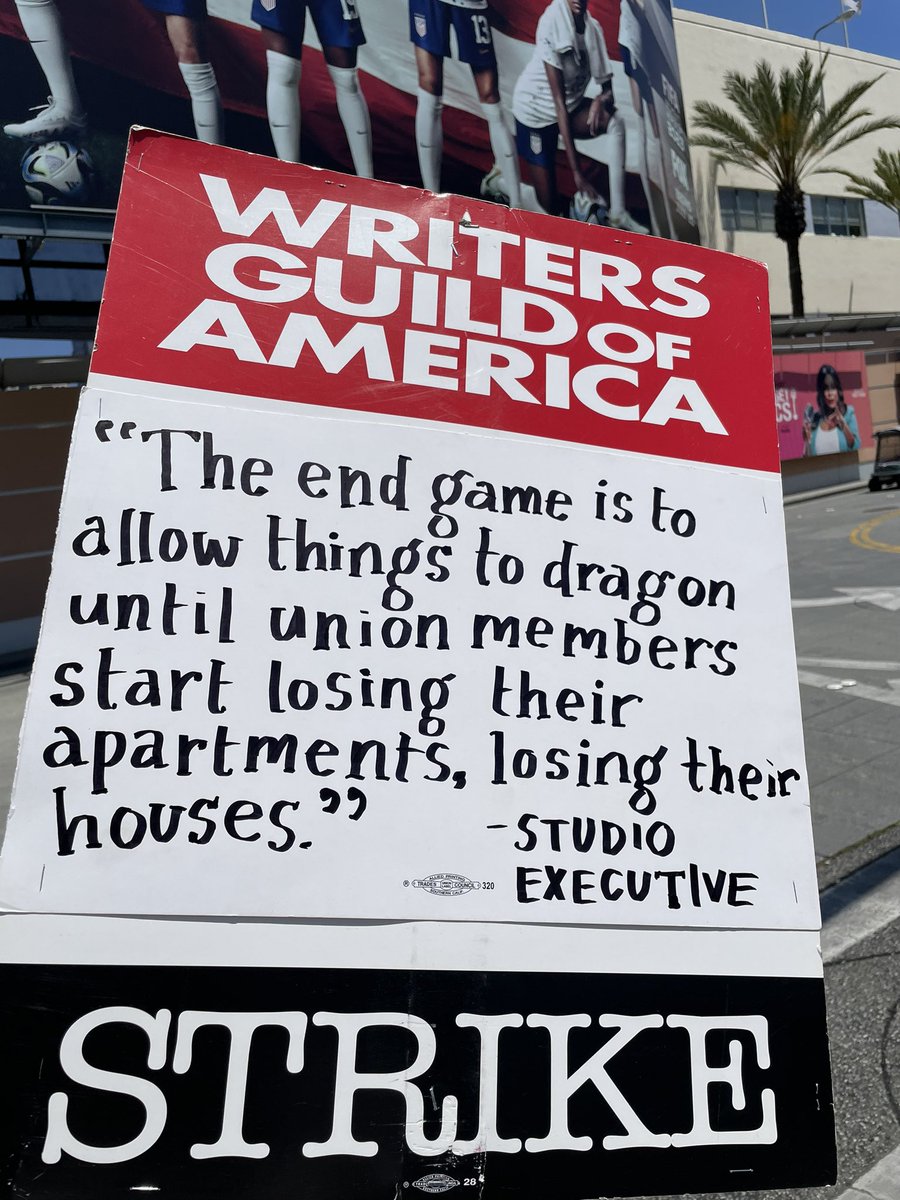 13
WRITERS
GUILD OF
AMERICA
“The end game is to
allow things to dragon
until union members
start losing their
apartments, losing their
houses.”
-STUDIO
EXECUTIVE
ALLIED PRINTING
TRADES COUNCIL 320
STRIKE
28